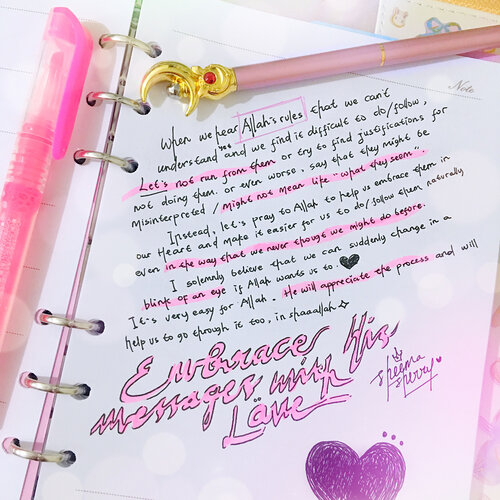 Note
When we hear Allah's rules that we can't
understand yet and we find it difficult to do/follow,
Let's not run from them or try to find justifications for
not doing them. or even worse, say that they might be
misinterpreted / might not mean like "what they seem".
Instead, let's pray to Allah to help us embrace them in
our Heart and make it easier for us to do/follow them naturally
even in the way that we never though we might do before.
I solemnly believe that we can suddenly change in a
blink of an eye if Allah wants us to.
It's very easy for Allah. He will appreciate the process and will
help us to go through it too, in shaaallah
Embrace His
messages with
Love
sheema
sherry